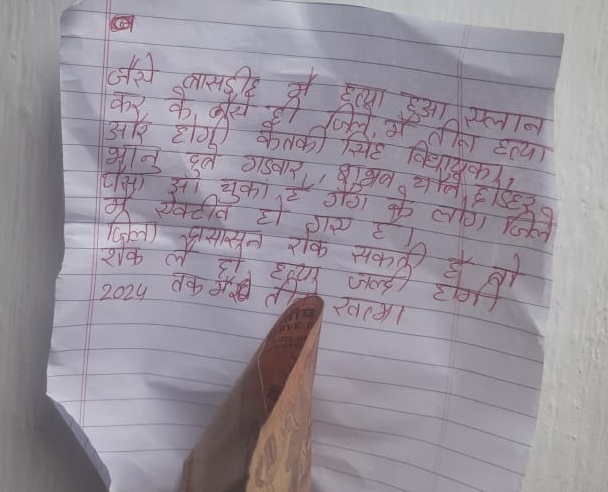 जैसे बासडीह मे हत्या हुआ एलान
कर के, वैसे ही जिले में तीन हत्या
और होगी केतकी सिंह विधायक।,
भानु दुबे गडवार,
पैसा आ चुका है गैंग के लोग जिले
में एक्टीव हो गए है।
जिला प्रसासन रोक सकती है तो
रोक ले दो हत्या जल्दी होगी
2024 तक खत्म।